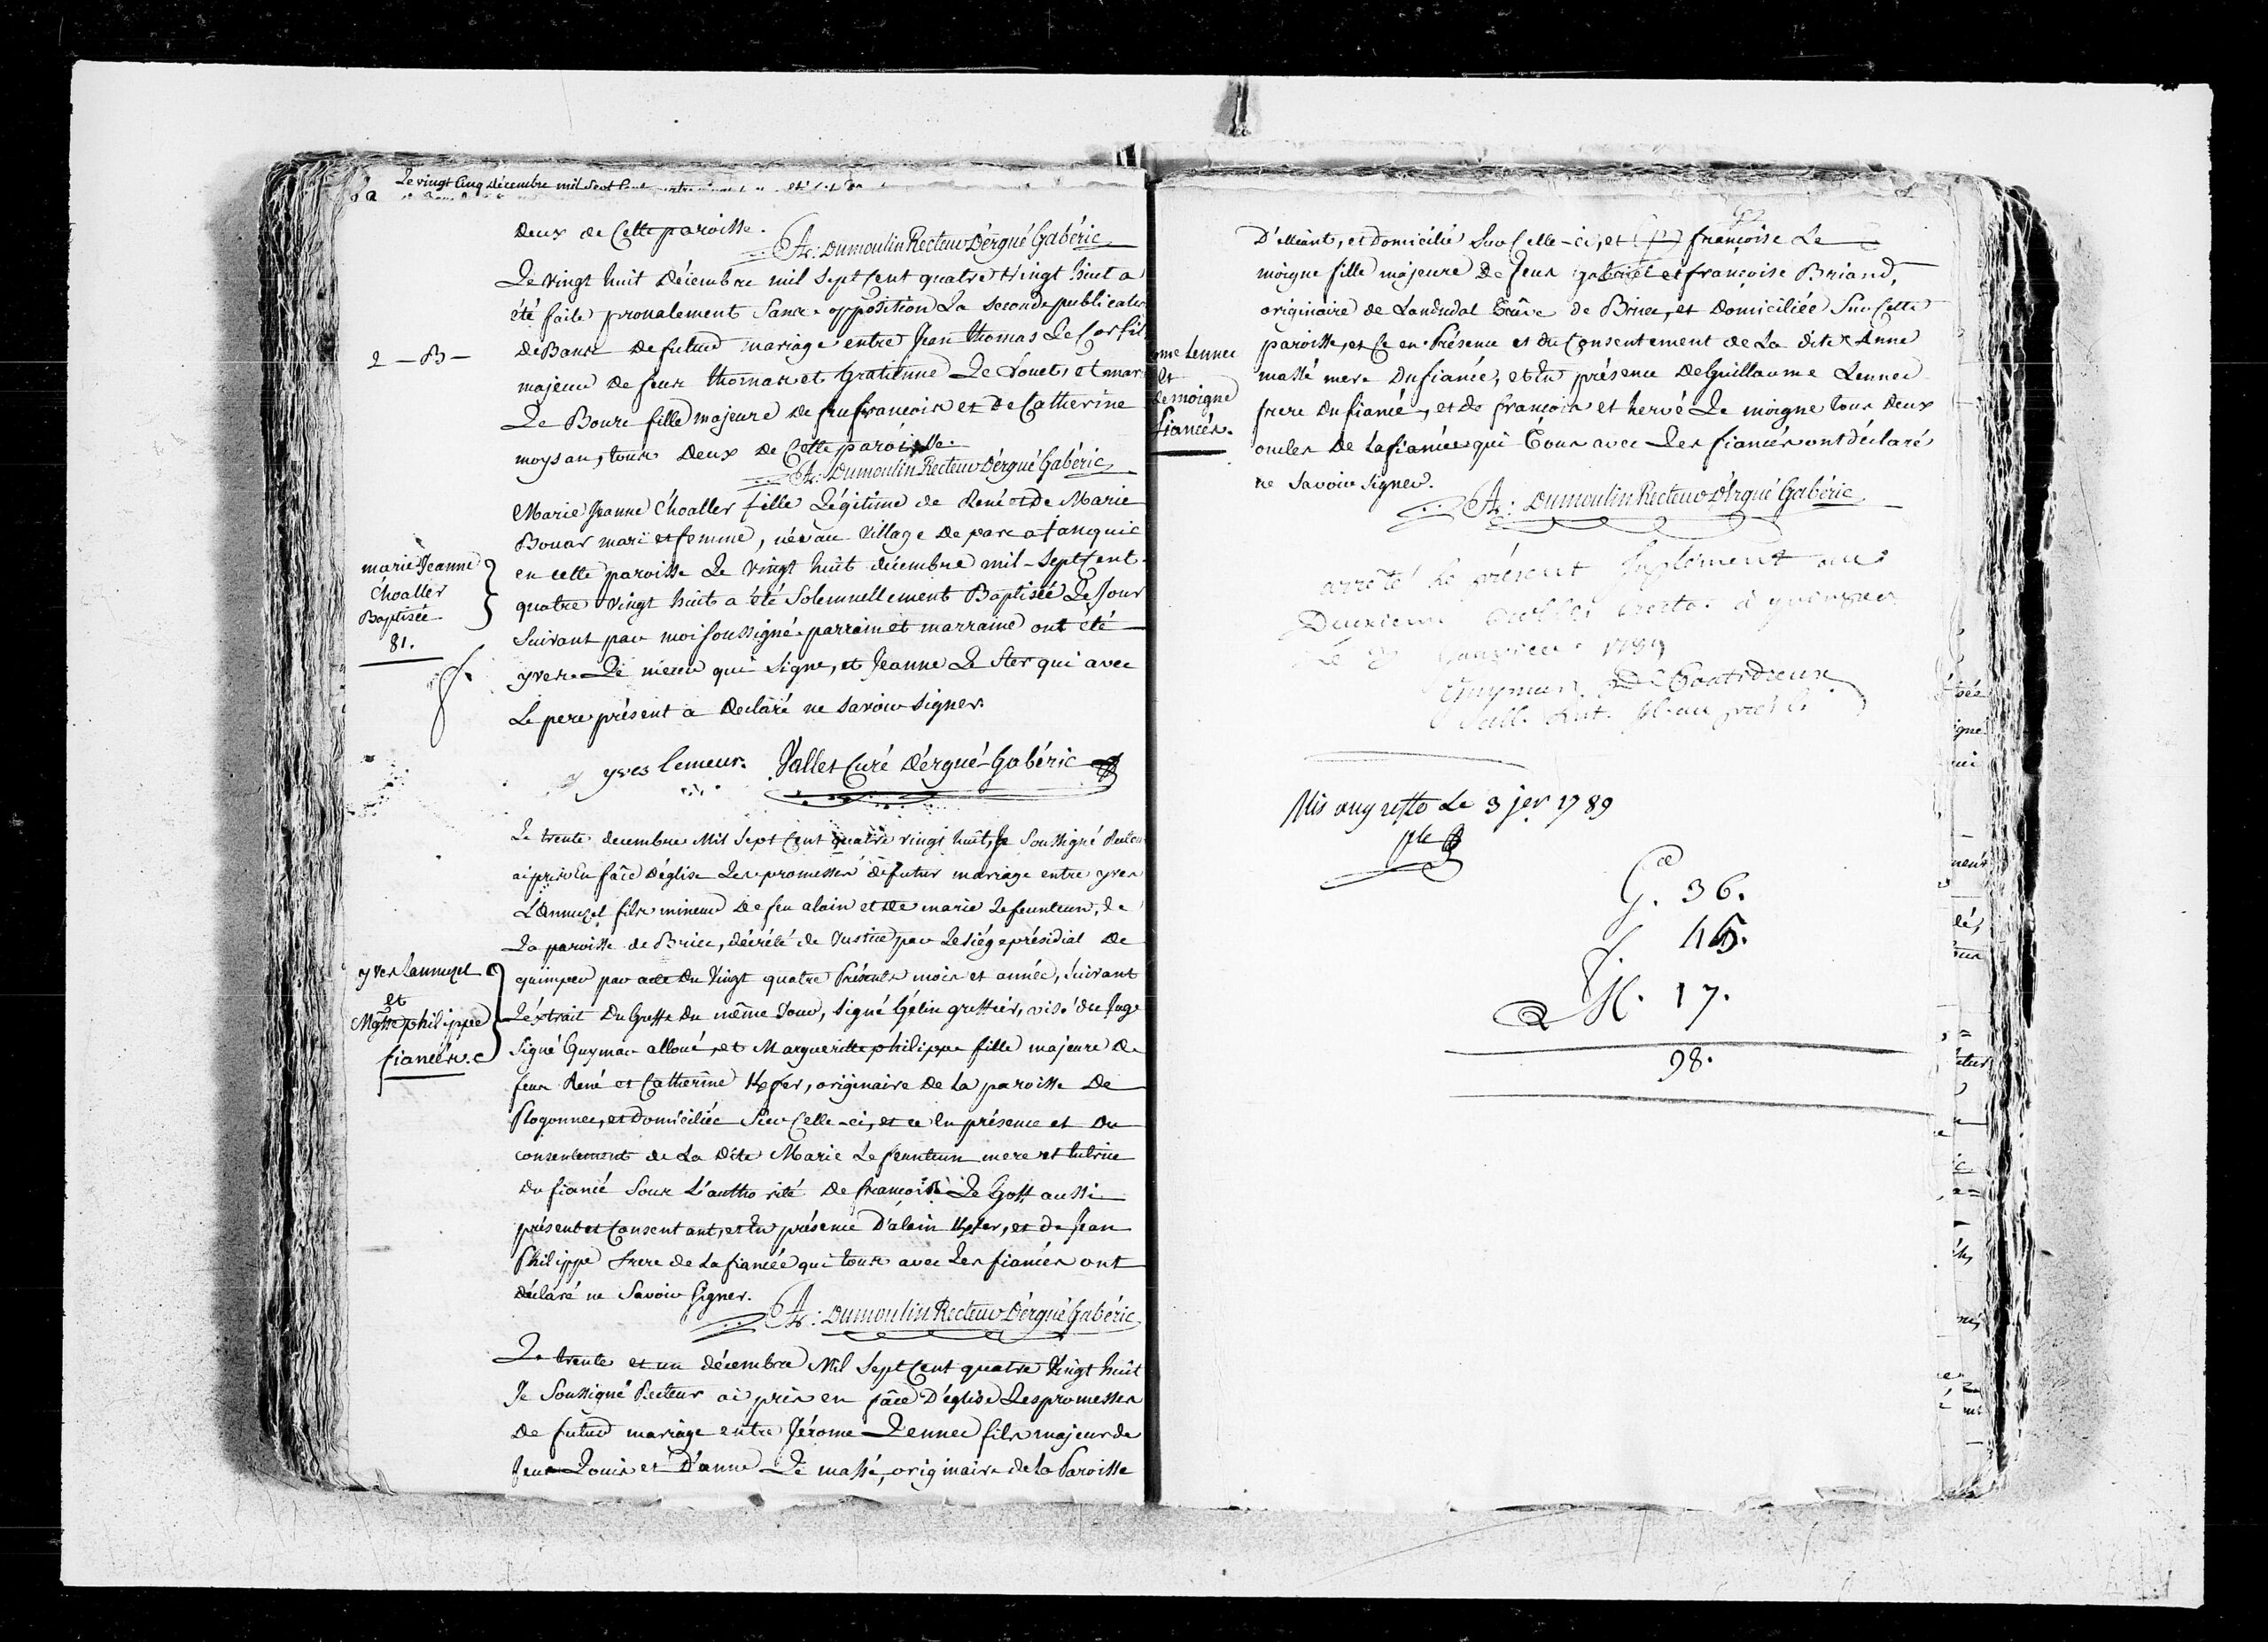 Le vingt Cinq décembre mil Sept Cent
deux de Cette paroisse.
A: Dumoulin Recteur D'érgué Gabéric
Le vingt huit Décembre mil Sept Cent quatre Vingt huit a
été faite pronalement Sans opposition La Seconde publication
2 - B -
de Bans de futur mariage entre Jean Thomas Le Cor fils
majeur de feux thomas et Gratienne Le Rouet, et mar
Le Boure fille majeure de feu françois et de Catherine
moysan, tous Deux de Cette paroisse.
A: Dumoulin Recteur D'érgué Gabéric
marie Jeanne
Choaller
Baptisée
81.
Marie Jeanne Choaller fille Légitime de René et De Marie
Bouar mari et femme, née au Village De parc a
en cette paroisse Le Vingt huit décembre mil-Sept Cent
quatre Vingt huit a été Solemnellement Baptisée Le Jour
Suivant par moi Soussigné parrain et marraine ont été
yves Le meur qui Signe, et Jeanne Le Ster qui avec
Le pere présent a Déclaré ne Savoir Signer.
yves lemeur. Vallet Curé D'érgué-Gabéric
Le trente decembre Mil Sept Cent quatre vingt huit, Je Soussigné Recteur
ai pris En face D'église Les promesses de futur mariage entre yves
L'Annuzel fils mineur De feu alain et De marie Le feunteun, de
La paroisse de Briec, décrété de Justice par Le Siége présidial De
yves Lannuzel
et
Mgtte philippe
fiancés.
quimper par acte Du Vingt quatre Présents mois et année, Suivant
L'éxtrait Du Greffe Du même Jour, Signé Gélin greffier, visé du Juge
Signé Guymar alloué, et Margueritte philippe fille majeure De
feux René et Catherine Kfer, originaire De La paroisse De
Plogonnec, et Domiciliée Sur Celle-ci, et ce En présence et Du
consentement de La Dite Marie Le feunteun mere et tutrice
Du fiancé Sous L'authorité De françois Le Goff aussi
présent et Consentant, et En présence D'alain Kfer, et De Jean
Philippe frere de La fiancée qui tous avec Les fiancés ont
Déclaré ne Savoir Signer.
A: Dumoulin Recteur D'érgué Gabéric
Le trente et un décembre Mil Sept Cent quatre Vingt huit
Je Soussigné Recteur ai pris en face D'église Les promesses
De futur mariage entre Jérome Lennec fils majeur de
feux Louis et D'anne Le massé, originaire de La Paroisse
D'elliant, et domicilié Sur Celle-ci, et françoise Le
moigne fille majeure De feux gabriel et françoise Briand,
originaire de Landudal Trêve de Briec, et Domiciliée Sur Cette
ome Lennec
et
Le moigne
fiancés.
paroisse, et Ce en Présence et du Consentement de La dite Anne
massé mere Du fiancé, et En présence De Guillaume Lennec
frere Du fiancé, et de françois et hervé Le moigne tous Deux
oncles De La fiancée qui Tous avec Les fiancés ont déclaré
ne Savoir Signer.
A: Dumoulin Recteur D'érgué Gabéric
arrêté le présent Suplément au
Deuxieme
Le 1789
Mis au greffe Le 3 jer 1789
G. 36.
f. 45.
M. 17.
98.